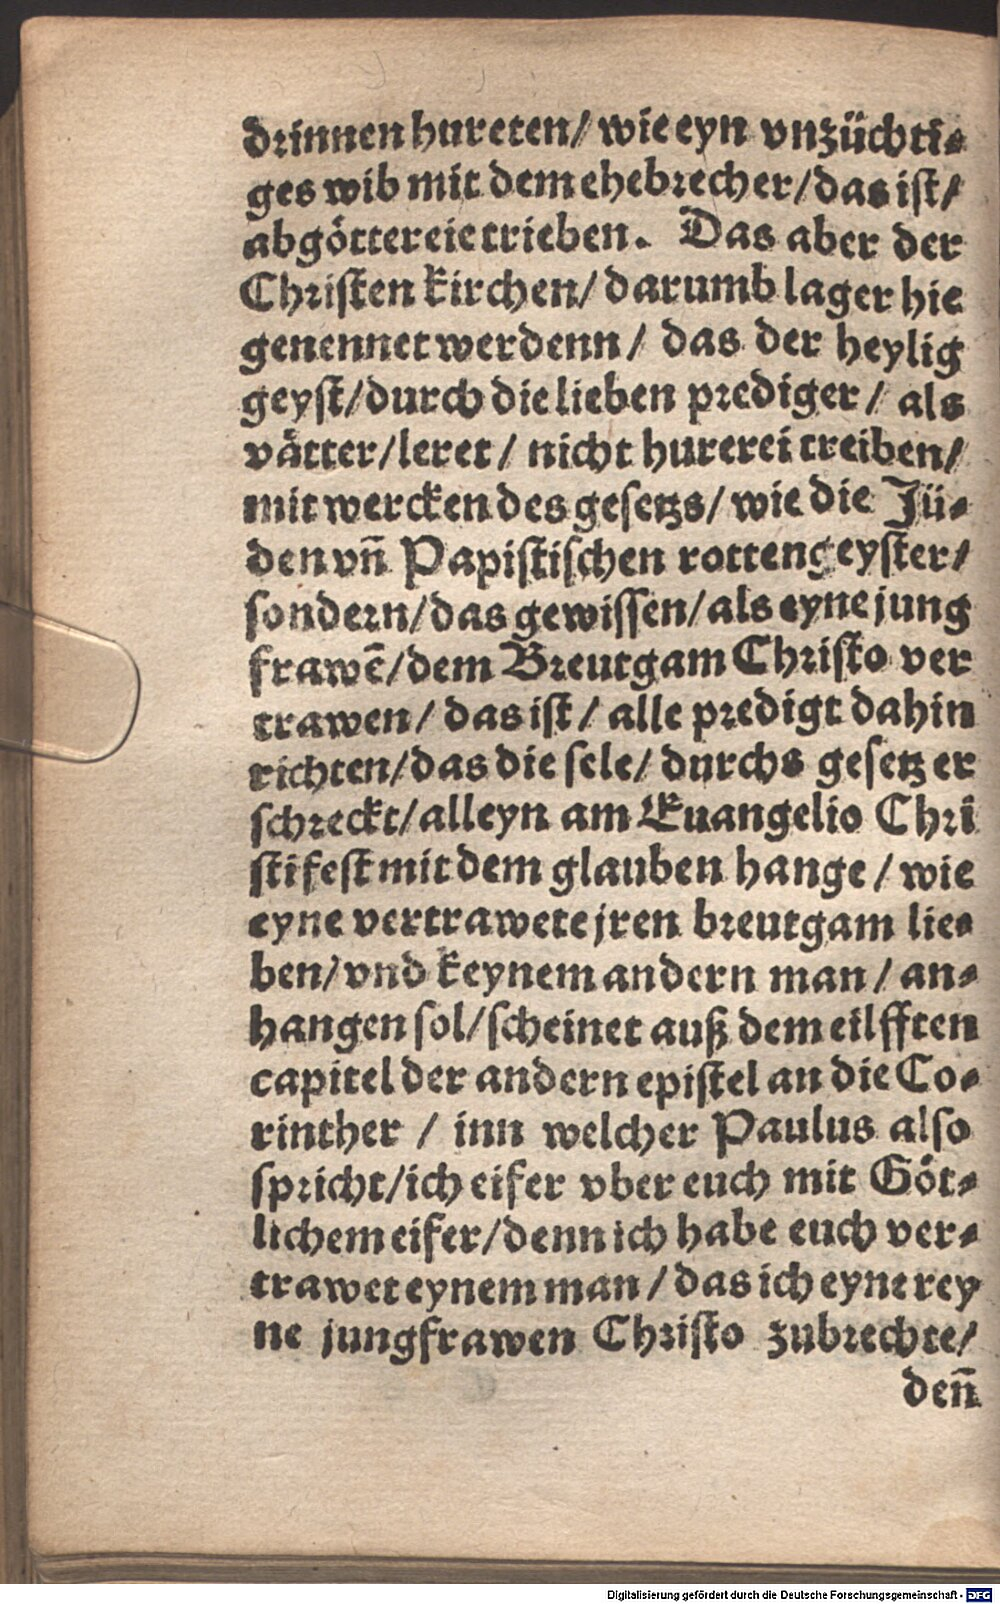 drinnen hureten/ wie eyn vnzüchti⸗
ges wib mit dem ehebrecher/ das iſt/
abgöttereie trieben. Das aber der
Chriſten kirchen/ darumb lager hie
genennet werdenn/ das der heylig
geyſt/ durch die lieben prediger/ als
vätter/ leret/ nicht hurerei treiben/
mit wercken des geſetzs/ wie die Jü⸗
den vn̄ Papiſtiſchen rottengeyſter/
ſondern/ das gewiſſen/ als eyne jung
frawē/ dem Breutgam Chriſto ver
trawen/ das iſt/ alle predigt dahin
richten/ das die ſele/ durchs geſetz er
ſchreckt/ alleyn am Euangelio Chri
ſti feſt mit dem glauben hange/ wie
eyne vertrawete jren breutgam lie⸗
ben/ vnd keynem andern man/ an⸗
hangen ſol/ ſcheinet auß dem eilfften
capitel der andern epiſtel an die Co⸗
rinther/ inn welcher Paulus alſo
ſpricht/ ich eifer vber euch mit Göt⸗
lichem eifer/ denn ich habe euch ver⸗
trawet eynem man/ das ich eyne rey
ne jungfrawen Chriſto zubrechte/
den̄
Digitalisierung gefördert durch die Deutsche Forschungsgemeinschaft - DFG